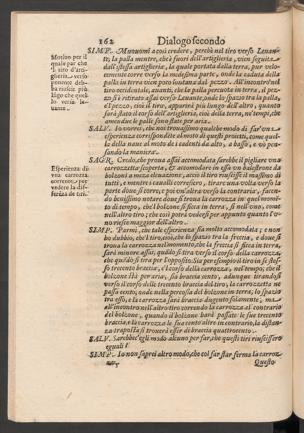 162 Dialogo secondo
Motivo per il
quale par che
'l tiro d'arti
glieria, verso
ponente deb-
ba riuscir più
lũgo che quel-
lo verso le-
uante.
SIMP. Muouomi a così credere, perchè nel tiro verso Leuan-
te, la palla mentre, che è fuori dell'artiglieria, vien seguita
dall'istessa artiglieria, la quale portata dalla terra, pur velo-
cemente corre verso la medesima parte, onde la caduta della
palla in terra vien poco lontana dal pezzo. All'incontro nel
tiro occidentale, auanti, che la palla percuota in terra, il pez-
zo si è ritirato assai verso Leuante, onde lo spazio tra la palla,
e 'l pezzo, cioè il tiro, apparirà più lungo dell'altro, quanto
sarà stato il corso dell'artiglieria, cioè della terra, ne' tempi, che
amendue le palle sono state per aria.
SALV. Io vorrei, che noi trouassimo qualche modo di far' vna
esperienza corrispondente al moto di questi proietti, come quel-
lo della naue al moto de i cadenti da alto, a basso, e vò pen-
sando la maniera.
Esperienza di
vna carrozza
corrente, per
vedere la dif-
ferenza de tiri.
SAGR. Credo, che proua assai accomodata sarebbe il pigliare vna
carrozzetta scoperta, & accomodare in essa vn balestrone da
bolzoni a mezza eleuazione, acciò il tiro riuscisse il massimo di
tutti, e mentre i caualli corressero, tirare vna volta verso la
parte doue si corre, e poi vn'altra verso la contraria, facen-
do benissimo notare doue si troua la carrozza in quel momen-
to di tempo, che'l bolzone si ficca in terra, sì nell'vno, come
nell'altro tiro; che così potrà vedersi per appunto quanto l'v-
no riesce maggior dell'altro.
SIMP. Parmi, che tale esperienza sia molto accomodata; e non
hò dubbio, che 'l tiro, cioè, che lo spazio tra la freccia, e doue si
troua la carrozza nel momento, che la freccia si ficca in terra,
sarà minore assai, quando si tira verso il corso della carrozza,
che quando si tira per l'opposito. Sia per esempio il tiro in se stes-
so trecento braccia, e 'l corso della carrozza, nel tempo, che il
bolzone stà per aria, sia braccia cento, adunque tirandosi
verso il corso delle trecento braccia del tiro, la carrozzetta ne
passa cento; onde nella percossa del bolzone in terra, lo spazio
tra esso, e la carrozza sarà braccia dugento solamente, ma
all'incontro nell'altro tiro correndo la carrozza al contrario
del bolzone, quando il bolzone harà passate le sue trecento
braccia, e la carrozza le sue cento altre in contrario, la distan-
za traposta si trouerà esser di braccia quattrocento.
SALV. Sarebbec'egli modo alcuno per far, che questi tiri riuscissero
eguali?
SIMP. Io non saprei altro modo, che col far star ferma la carroz-
za. Questo